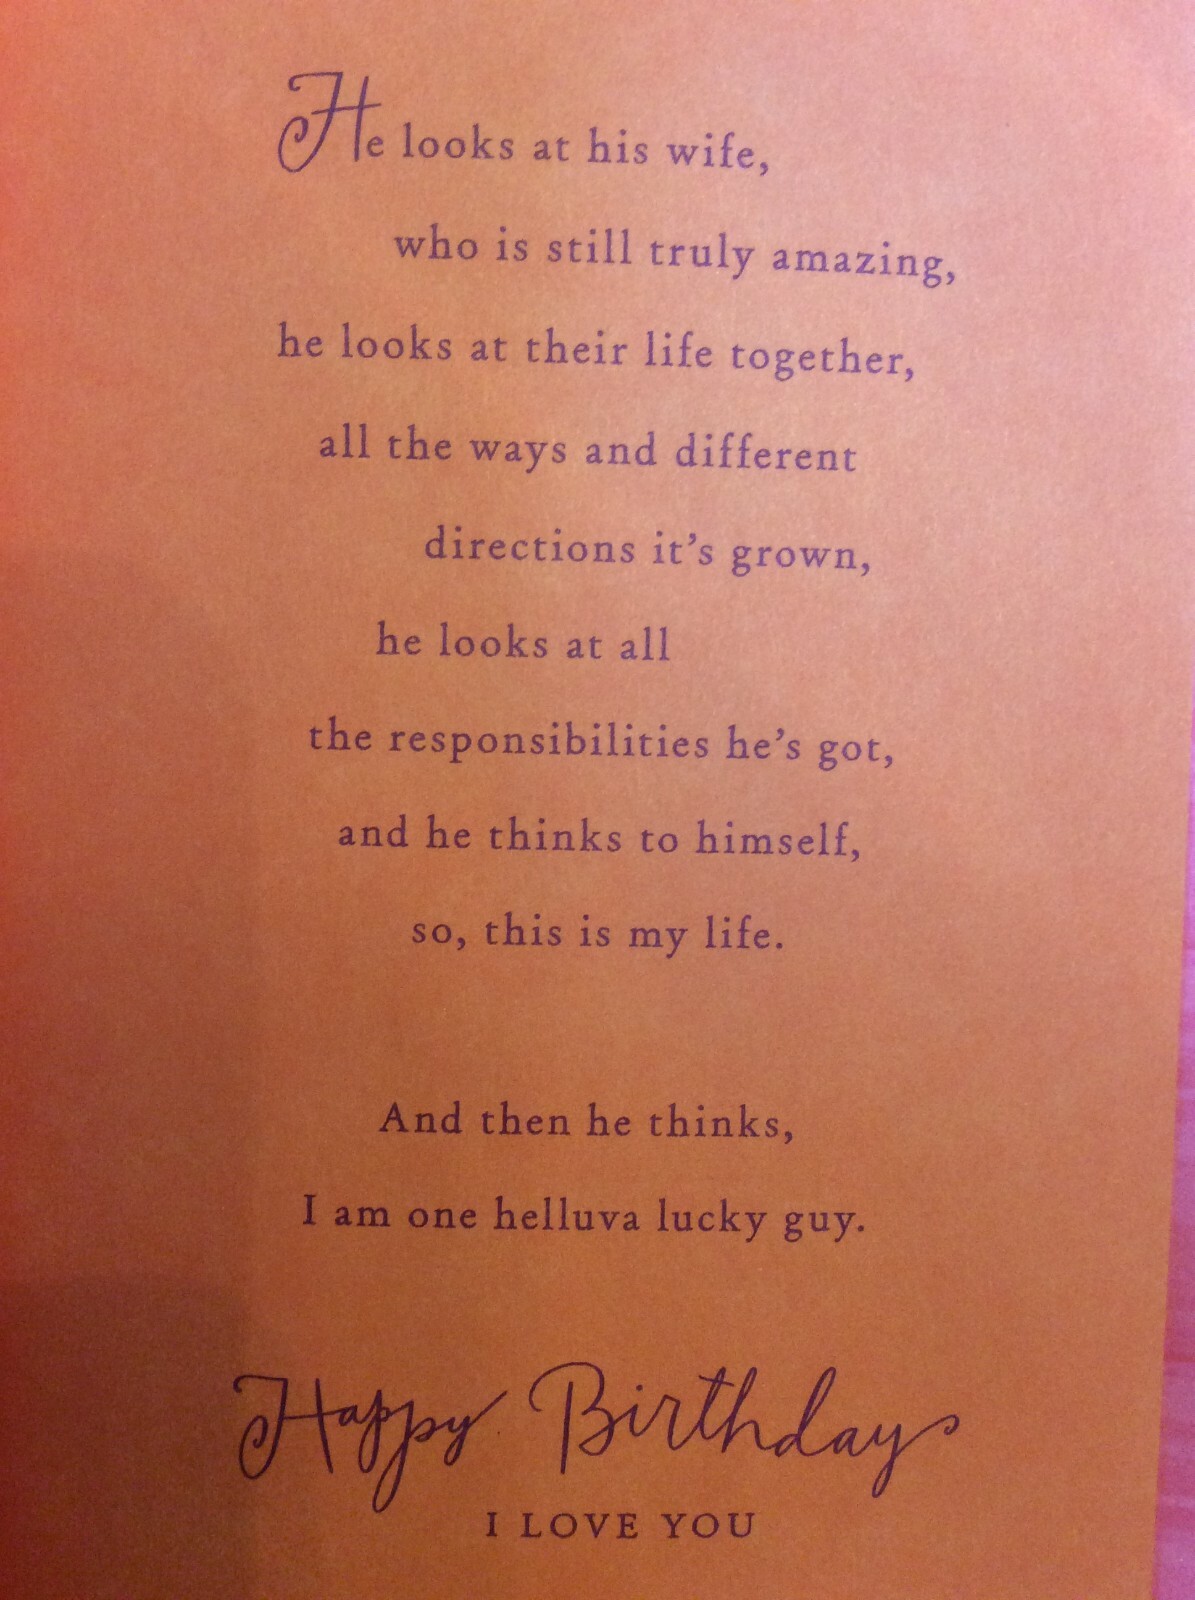 He looks at his wife,
who is still truly amazing,
he looks at their life together,
all the ways and different
directions it's grown,
he looks at all
the responsibilities he's got,
and he thinks to himself,
so, this is my life.
And then he thinks,
I am one helluva lucky guy.
Happy Birthday
I LOVE YOU